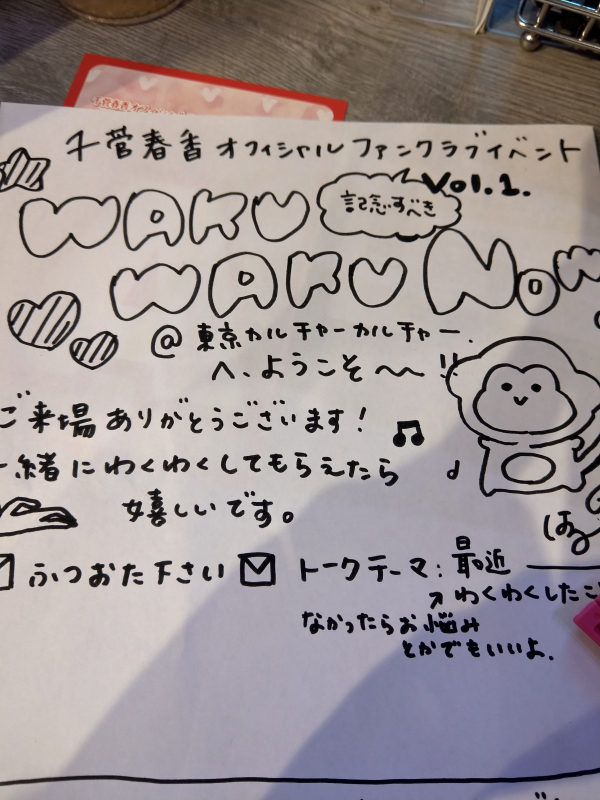 千菅春香オフィシャルファンクラブイベント
Vol.1.
WAKU
記念すべき
WAKU NOW
@東京カルチャーカルチャー
へ、ようこそ〜〜!!
ご来場ありがとうございます!
一緒にわくわくしてもらえたら
嬉しいです。
ふつおた下さい
トークテーマ:最近
わくわくしたこ
なかったらお悩み
とかでもいいよ.